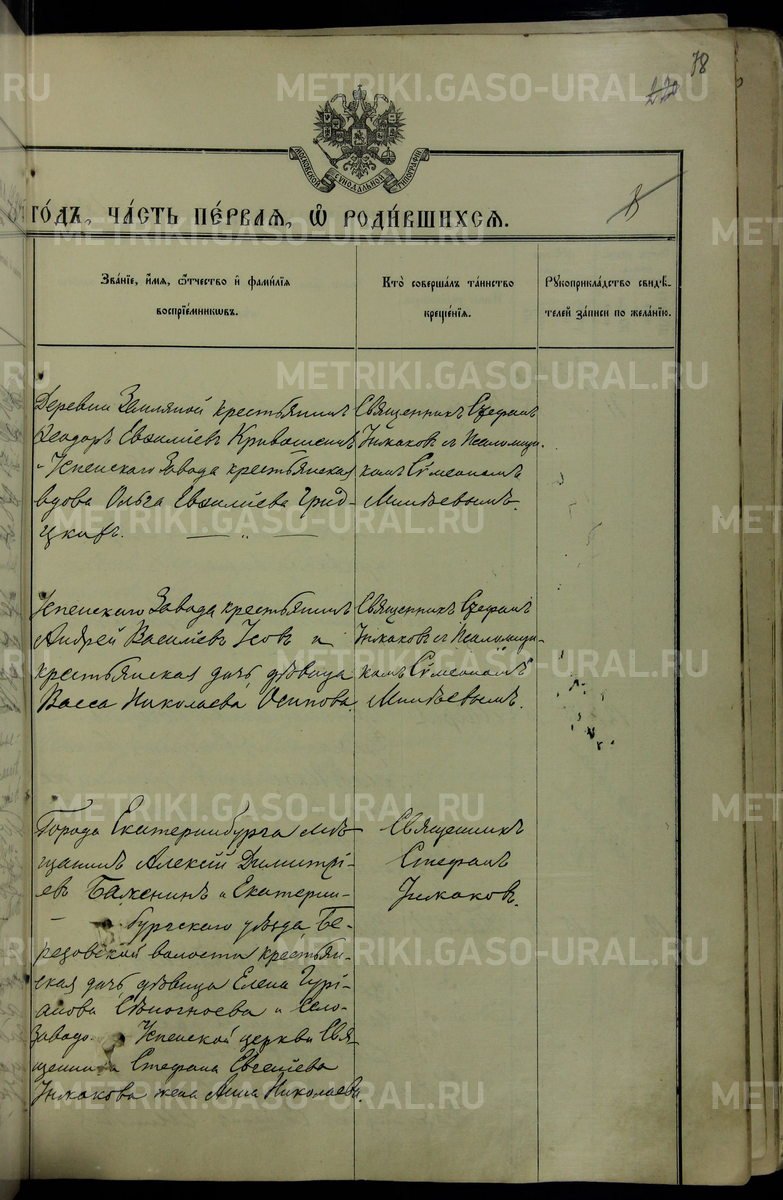 78
МОСКОВСКОЙ СѴНОДАЛЬНОЙ ТИПОГРАФІИ
ГОДЪ, ЧАСТЬ ПЕРВАЯ, Ѡ РОДИВШИХСЯ.
Званіе, имя, ѿчество и фамилія
воспріемниковъ.
Кто совершалъ таинство
крещенія.
Рукоприкладство свидѣ-
телей записи по желанію.
Деревни Земляной крестьянинъ
Ѳеодоръ Евѳиміевъ Кривошеинъ
и Успенскаго Завода крестьянская
вдова Ольга Евѳиміева
Священникъ Стефанъ
Унжаковъ с Псаломщи-
комъ Сѵмеономъ
Минѣевымъ.
Успенскаго Завода крестьянинъ
Андрей Василіевъ Усовъ и
крестьянская дочь дѣвица
Васса Николаева Осипова.
Священникъ Стефанъ
Унжаковъ с Псаломщи-
комъ Сѵмеономъ
Минѣевымъ.
Города Екатеринбурга мѣ-
щанинъ Алексій Димитрі-
евъ Баженинъ и Екатерин-
бургскаго уѣзда, Бе-
резовской волости крестьян-
ская дочь дѣвица Елена Гурі-
анова и село-
Заводо- Успенской церкви Свя-
щенника Стефана Евгеніева
Унжакова жена Анна Николаева.
Священникъ
Стефанъ
Унжаковъ.
METRIKI.GASO-URAL.RU